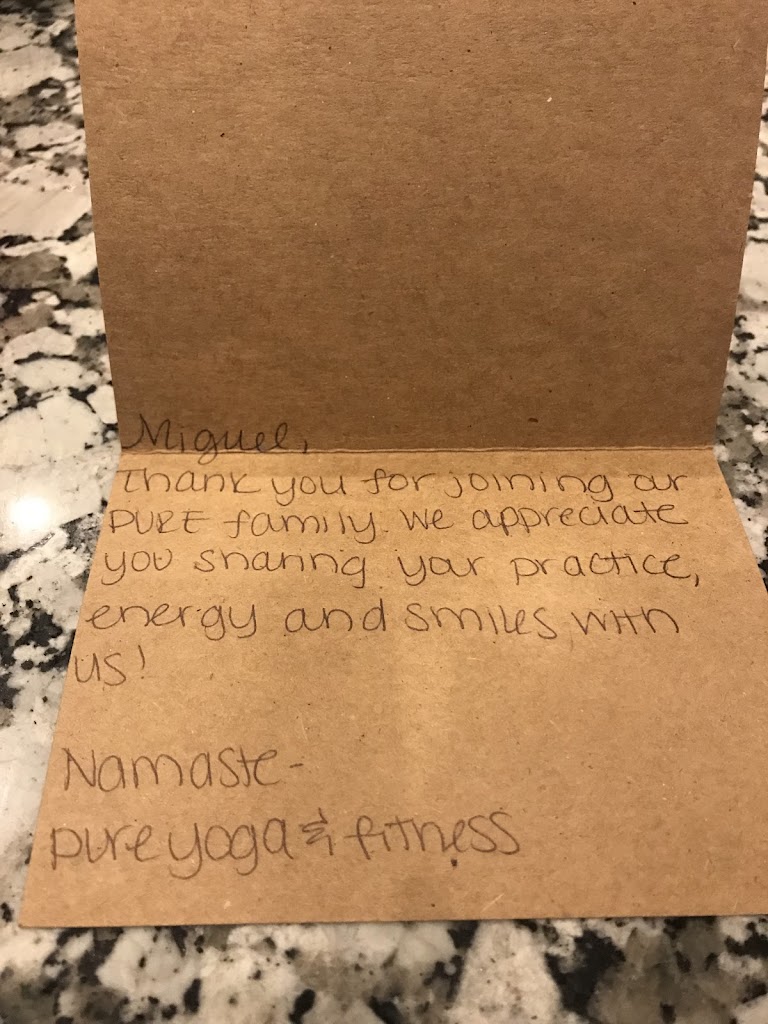 Miguel,
Thank you for joining our
PURE family. We appreciate
you sharing your practice,
energy and smiles with
us!
Namaste-
pure yoga & fitness